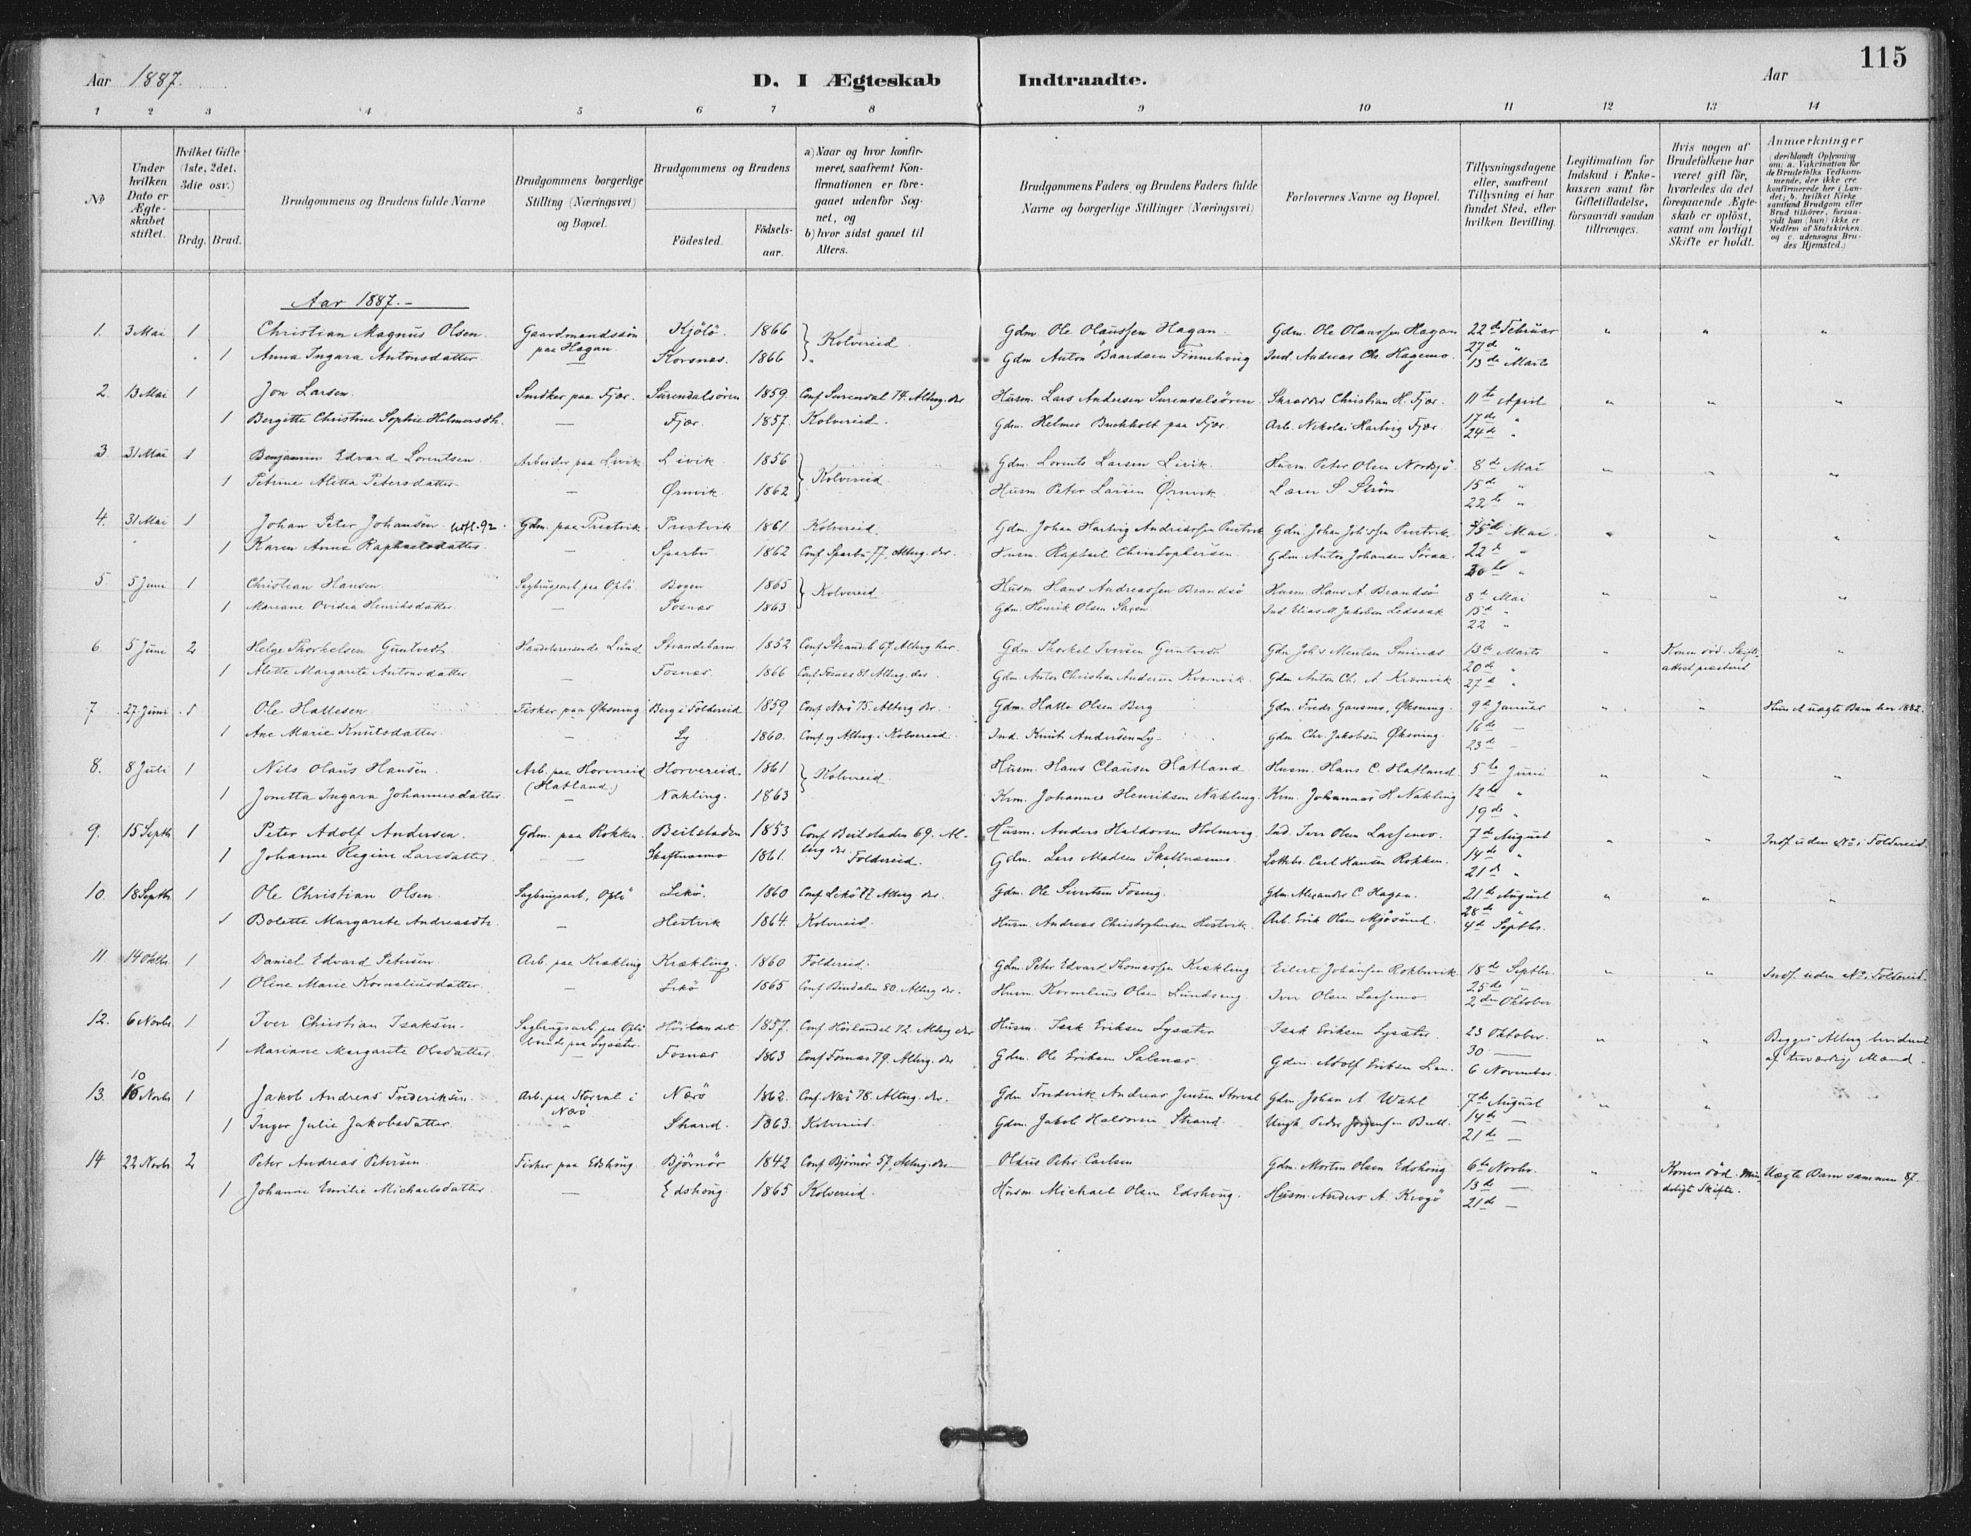 115
Aar 1887.
D. I Ægteskab Indtraadte.
Aar
1 2 3 4 5 6 7 8 9 10 11 12 13 14
No
Under hvilken Dato er Ægteskabet stiftet.
Hvilket Gifte (1ste, 2det, 3die osv.)
Brdg. Brud.
Brudgommens og Brudens fulde Navne
Brudgommens borgerlige Stilling (Næringsvei) og Bopæl.
Brudgommens og Brudens
Födested.
Födselsaar.
a) Naar og hvor konfirmeret, saafremt Konfirmationen er foregaaet udenfor Sognet, og
b) hvor sidst gaaet til Alters.
Brudgommens Faders og Brudens Faders fulde Navne og borgerlige Stillinger (Næringsvei)
Forlovernes Navne og Bopæl.
Tillysningsdagene eller, saafremt Tillysning ei har fundet Sted, efter hvilken Bevilling.
Legitimation for Indskud i Enkekassen samt for Giftetilladelse, forsaavidt saadan tiltrænges.
Hvis nogen af Brudefolkene har været gift før, hvorledes da det foregaaende Ægteskab er oplöst, samt om lovligt Skifte er holdt.
Anmærkninger (deriblandt Oplysning om: a. Vakcination for de Brudefolks Vedkommende, der ikke ere konfirmerede her i Landet; b. hvilket Kirkesamfund Brudgom eller Brud tilhörer, forsaavidt han (hun) ikke er Medlem af Statskirken, og c. udensogns Brudes Hjemsted.)
Aar 1887.-
1. 3 Mai 1 Christian Magnus Olsen. Gaardmandssön paa Hagan. Kjölö. 1866 Kolvereid Gdm. Ole Olaussen Hagan. Gdm. Ole Olaussen Hagan 22de Februar
1 Anna Ingara Antonsdatter. Korsnæs. 1866 Gdm Anton Baardsen Finnehoug Ind. Andreas Chr. Hagemo. 27d " 13de Marts
2. 13 Mai 1 Jon Larsen. Snedker paa Fjær. Surendalsören 1859. Conf Surendal 74. Altbrg. der Husm. Lars Andersen Surendalsören Skrædder Christian H. Fjær. 11te April
1 Bergitte Christine Sophie Helmersdt. — Fjær. 1857. Kolvereid. Gdm. Helmer Buchholt paa Fjær. Arb. Nikolai Hartvig Fjær. 17de " 24de "
3. 31 Mai 1 Benjamin Edvard Lorentsen. Arbeider paa Livik Livik 1856 Kolvereid Gdm. Lorents Larsen Livik. Husm. Peter Olsen Nordsjö. 8de Mai
1 Petrine Aletta Petersdatter — Ørnvik 1862 Husm Peter Larsen Ørnvik Lærer S Ström 15de " 22de "
4. 31 Mai 1 Johan Peter Johansen Gdm. paa Prestvik Prestvik 1861. Kolvereid. Gdm. Johan Hartvig Andreassen Prestvik 15de Mai
1 Karen Anna Raphaelsdatter — Sparbu 1862 Conf Sparbu 77, Altbrg. der. Husm. Raphael Christophersen Gdm Anton Johansen 22de " 30te "
5 5 Juni 1 Christian Hansen Sagbrugsarb. paa Oplö Bogen 1865 Kolvereid Husm Hans Andreassen Brandsö Husm Hans A. Brandsö 8de Mai
1 Mariane Ovidea Henriksdatter — Fosnæs 1863 Gdm. Henrik Olsen 15de " 22 "
6 5 Juni 2 Helge Thorkelsen Guntvedt Handelsreisende Lund Strandebarm 1852 Conf Strandeb 67. Altbrg her. Gdm. Thorkel Iversen Guntvedt 13de Marts Konen död. Skifteattest præsteret
1 Alette Margarete Antonsdatter Fosnæs 1866 Conf Fosnæs 81 Altbrg. der. Gdm Anton Christian Andersen Kvernvik. Gdm Anton Chr. A Kvernvik 20de " 27de "
7 27 Juni 1 Ole Hallesen Fisker paa Øksning Berg i Foldereid 1859 Conf Nærö 75. Altbrg der. Gdm. Halle Olsen Berg 9de Januar
1 Ane Marie Knutsdatter. — Ly 1860. Conf og Altbrg. i Kolvereid. Ind. Knut Andersen Ly Gdm Chr. Jakobsen 16de — 23de —
8. 8 Juli 1 Nils Olaus Hansen. Arb. paa Horvereid (Hatland.) Horvereid. 1861 Kolvereid. Husm. Hans Clausen Hatland Husm. Hans C. Hatland 5te Juni
1 Jonetta Ingara Johannesdatter — Nakling. 1863 Krm. Johannes Henriksen Nakling. Krm. Johannes H. Nakling 12te " 19de "
9. 15 Septb 1 Peter Adolf Andersen. Gdm. paa Rokken. Beitstaden 1853 Conf Beitstaden 69. Altbrg der. Husm. Anders Haldorsen Holmvig. Ind. Iver Olsen Lassemo. 7de August Indf uden No i Foldereid.
1 Johanne Regine Larsdatter. — Skaftnæsmo 1861. Foldereid. Gdm. Lars Madsen Carl Hansen Rokken. 14de " 21de "
10. 18 Septb 1 Ole Christian Olsen. Sagbrugsarb, Oplö Lekö. 1860 Conf Lekö 77 Altbrg der. Gdm. Ole Sivertsen Gdm. Alexander C. Hagan. 21de August
1 Bolette Margarete Andreasdt. — Hestvik 1864. Kolvereid. Husm. Andreas Christophersen Hestvik. Arb. Erik Olsen Mjösund. 28de " 4de Septbr.
11 14 Oktbr 1 Daniel Edvard Petersen Arb. paa Krækling Krækling 1860 Foldereid. Gdm. Peter Edvard Thomassen Krækling Eilert Johansen 18de Septbr. Indf. uden No. i Foldereid.
1 Oline Marie Korneliusdatter. — Lekö 1865 Conf Bindalen 80. Altbrg der. Husm. Kornelius Olsen Lundseng. Iver Olsen Lassemo 25de " 2den Oktober
12. 6 Novbr 1 Iver Christian Isaksen. Sagbrugsarb. paa Oplö 1857. 72 Altbrg der Husm. Isak Eriksen Lysæter Isak Eriksen Lysæter. 23 Oktober. Begges Altbrg bevidnet af troværdig Mand.
1 Mariane Margarete Olsdatter. Fosnæs 1863 Conf Fosnæs 79. Altbrg. der Gdm. Ole Eriksen Salsnæs. Gdm. Adolf Eriksen 30 — 6 November.
13. 10 Novbr 1 Jakob Andreas Frederiksen. Arb. paa Storval i Nærö Nærö 1862. Conf. Nærö 78. Altbrg. der. Gdm Frederik Andreas Jensen Storval Gdm. Johan A Wahl 7de August
1 Inger Julie Jakobsdatter. — Strand. 1863. Kolvereid. Gdm. Jakob Haldorsen Strand. 14de — 21de —
14 22 Novbr 2 Peter Andreas Petersen. Fisker paa Edshoug. Bjørnör 1842 Conf Bjørnör 57, Altbrg. der Olaus Peter Carlsen Gdm. Morten Olsen Edshoug 6te Novbr. Konen död. Mundtligt Skifte. Uægte Barn sammen 87.
1 Johanne Emilie Michaelsdatter. — Edshoug. 1865 Kolvereid. Husm. Michael Olsen Edshoug. Husm. Anders A. Krogö 13de — 21de —